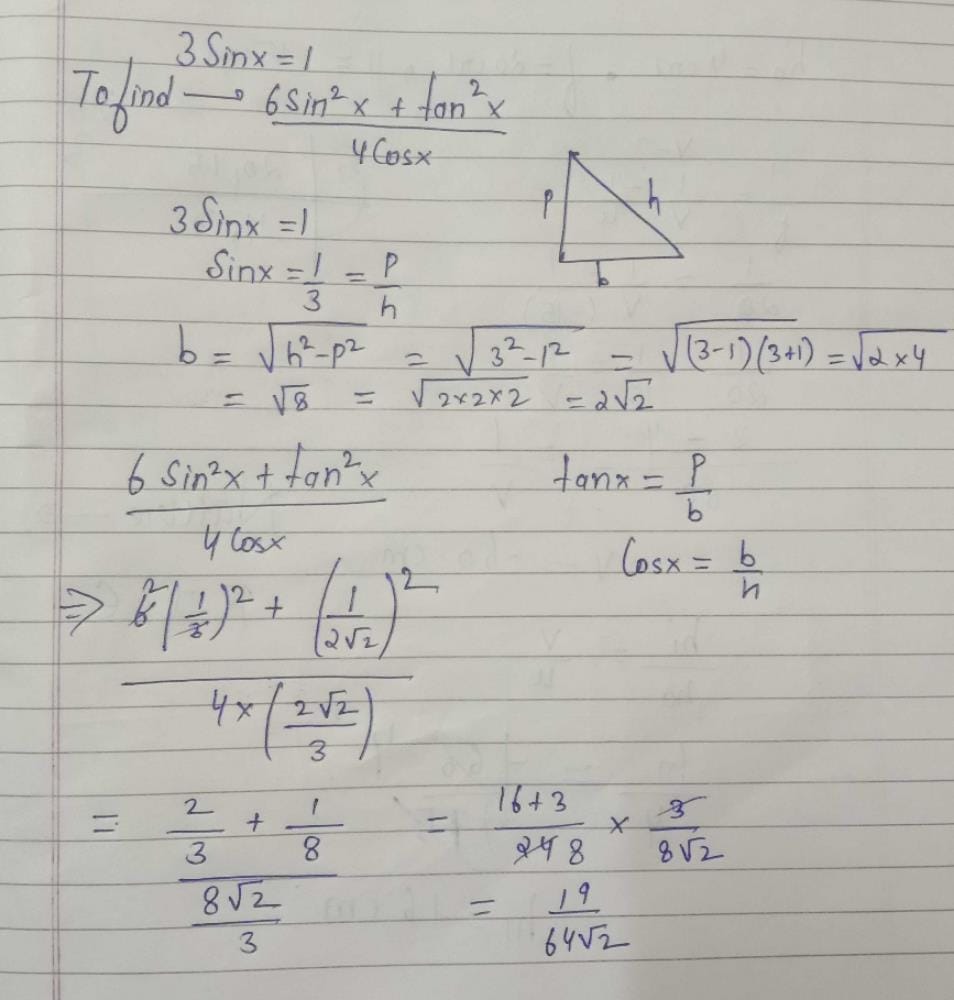 3 Sinx = 1
To find → (6 sin²x + tan²x)/(4 Cosx)
p h b
3 Sinx = 1
Sinx = 1/3 = P/h
b = √(h²-p²) = √(3²-1²) = √((3-1)(3+1)) = √(2×4)
= √8 = √(2×2×2) = 2√2
(6 Sin²x + tan²x)/(4 Cosx) tanx = P/b
Cosx = b/h
⇒ (6 2 (1/3)² + (1/2√2)²)/(4 × (2√2/3))
= (2/3 + 1/8)/(8√2/3) = (16+3)/(24 8) × 3/(8√2)
= 19/(64√2)